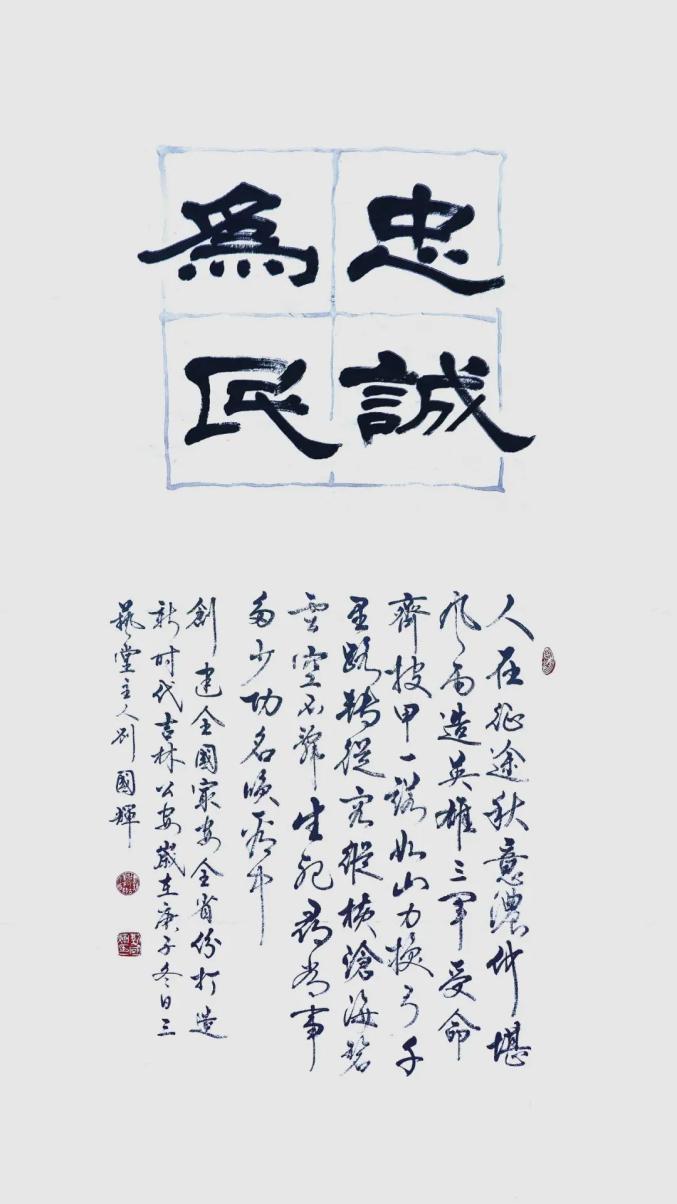 忠誠
為民
人在征途秋意濃何堪
风雨造英雄三軍受命
齊披甲一諾如山力挽弓千
里路轉從容縱橫滄海碧
雲空不辞生死尋常事
多少功名
創建全國最安全省份打造
新时代吉林公安歲在庚子冬日三
藝堂主人刘國輝